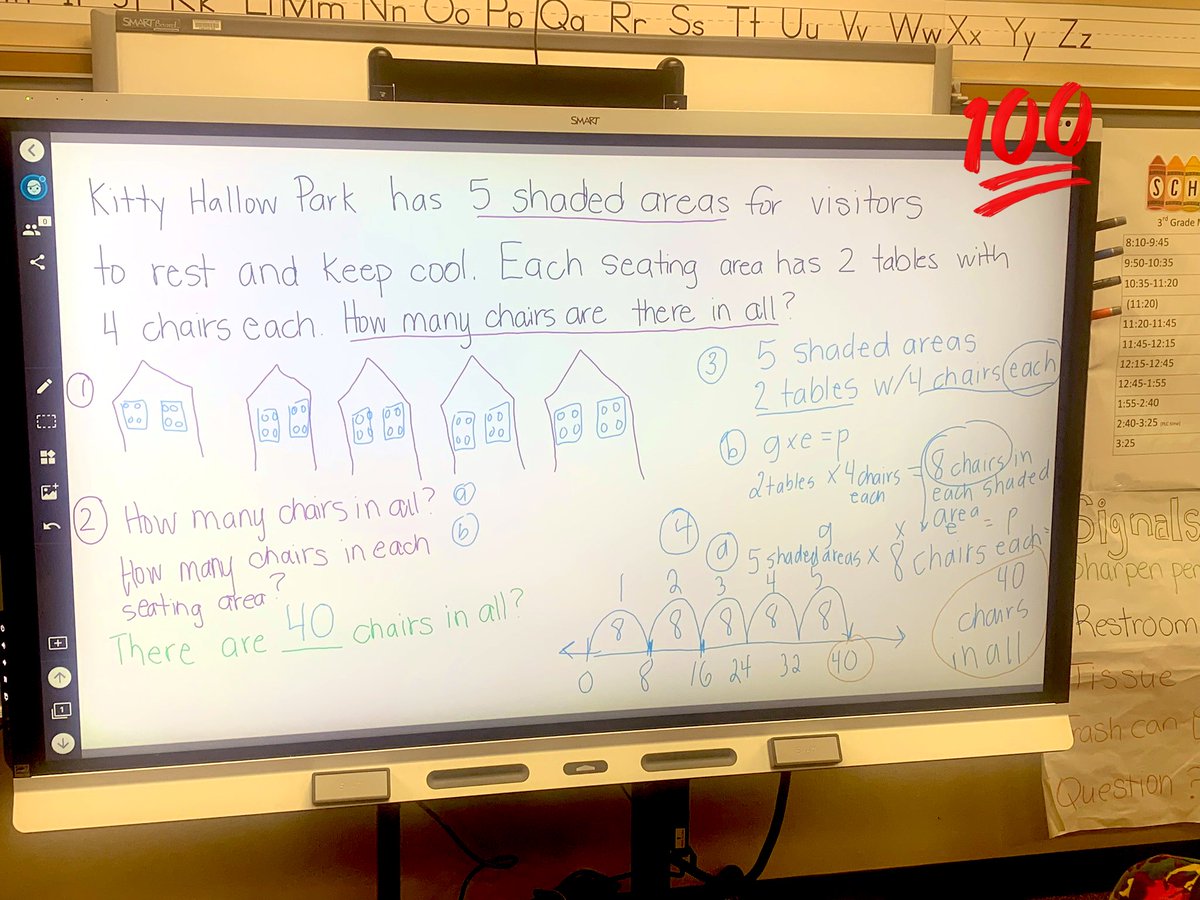 Kk Ll Mm Nn Oo Pp Qq Rr Ss Tt Uu Vv Ww Xx Yy Zz
SMART Board
SMART
100
Kitty Hallow Park has 5 shaded areas for visitors
to rest and keep cool. Each seating area has 2 tables with
4 chairs each. How many chairs are there in all?
1
2 How many chairs in all? a
How many chairs in each b
seating area?
There are 40 chairs in all?
3 5 shaded areas
2 tables w/4 chairs each
b g x e = p
2 tables x 4 chairs = 8 chairs in
each each shaded
area
4 g x e = p
a 5 shaded areas x 8 chairs each =
40
chairs
in all
1 2 3 4 5
8 8 8 8 8
0 8 16 24 32 40
SCH
3rd Grade
8:10-9:45
9:50-10:35
10:35-11:20
(11:20)
11:20-11:45
11:45-12:15
12:15-12:45
12:45-1:55
1:55-2:40
2:40-3:25
3:25
Signals
Sharpen
Restroom
Tissue
Question ?
0
1